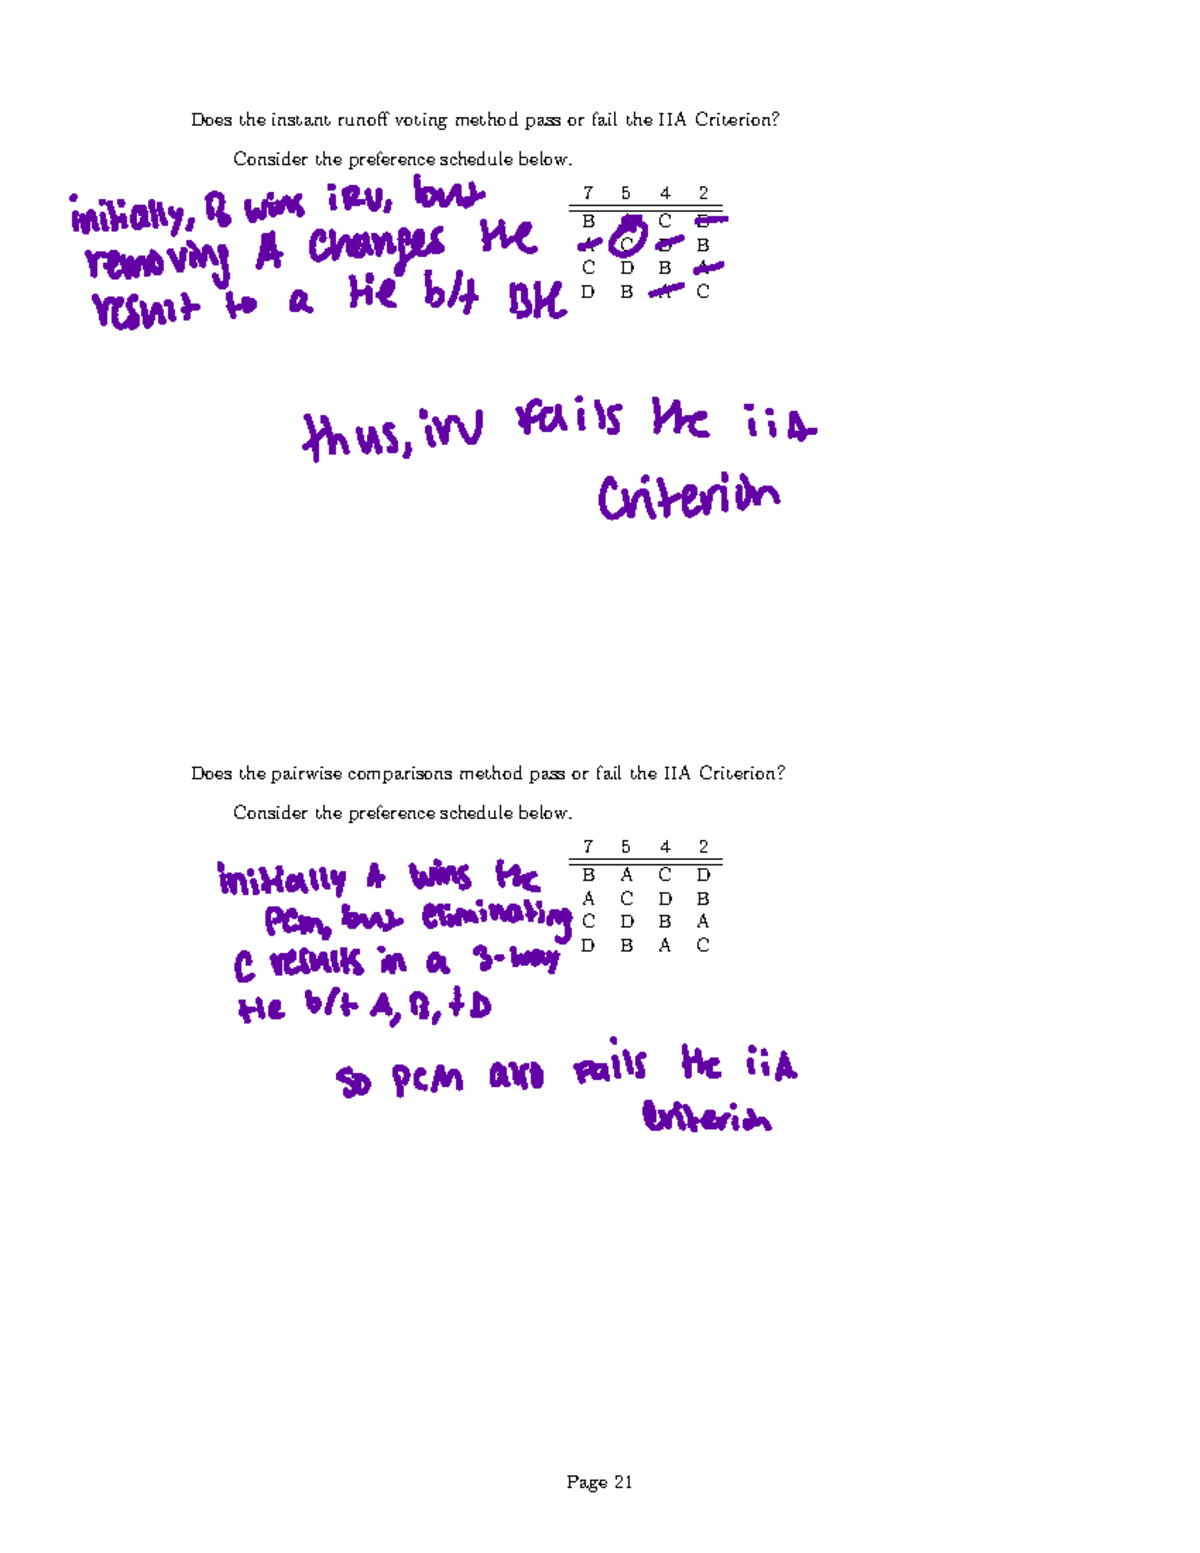 Does the instant runoff voting method pass or fail the IIA Criterion?
Consider the preference schedule below.
initially, B wins iRV, but
removing A changes the
result to a tie b/t B+C
7 5 4 2
B A C D
A C D B
C D B A
D B A C
thus, irv fails the iiA
Criterion
Does the pairwise comparisons method pass or fail the IIA Criterion?
Consider the preference schedule below.
initially A wins the
PCM, but eliminating
C results in a 3-way
tie b/t A, B, + D
7 5 4 2
B A C D
A C D B
C D B A
D B A C
so PCM also fails the iiA
Criterion
Page 21